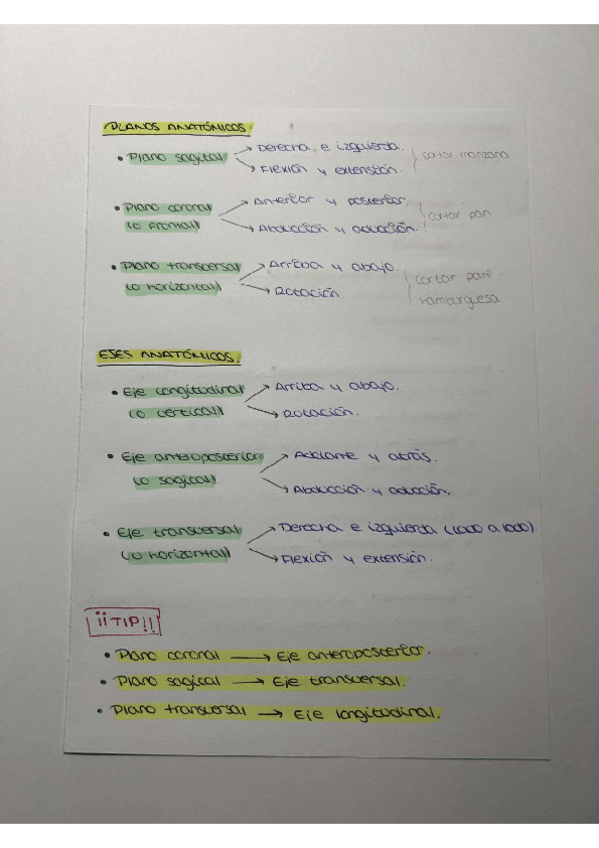 PLANOS ANATÓMICOS
• Plano sagital → Derecha e izquierda. → Flexión y extensión. { cortar manzana
• Plano coronal (o frontal) → Anterior y posterior. → Abducción y aducción. { cortar pan
• Plano transversal (o horizontal) → Arriba y abajo. → Rotación. { cortar pan hamburguesa
EJES ANATÓMICOS.
• Eje longitudinal (o vertical) → Arriba y abajo. → Rotación.
• Eje anteroposterior (o sagital) → Adelante y atrás. → Abducción y aducción.
• Eje transversal (u horizontal) → Derecha e izquierda (lado a lado) → Flexión y extensión.
¡¡TIP!!
• Plano coronal → Eje anteroposterior.
• Plano sagital → Eje transversal.
• Plano transversal → Eje longitudinal.